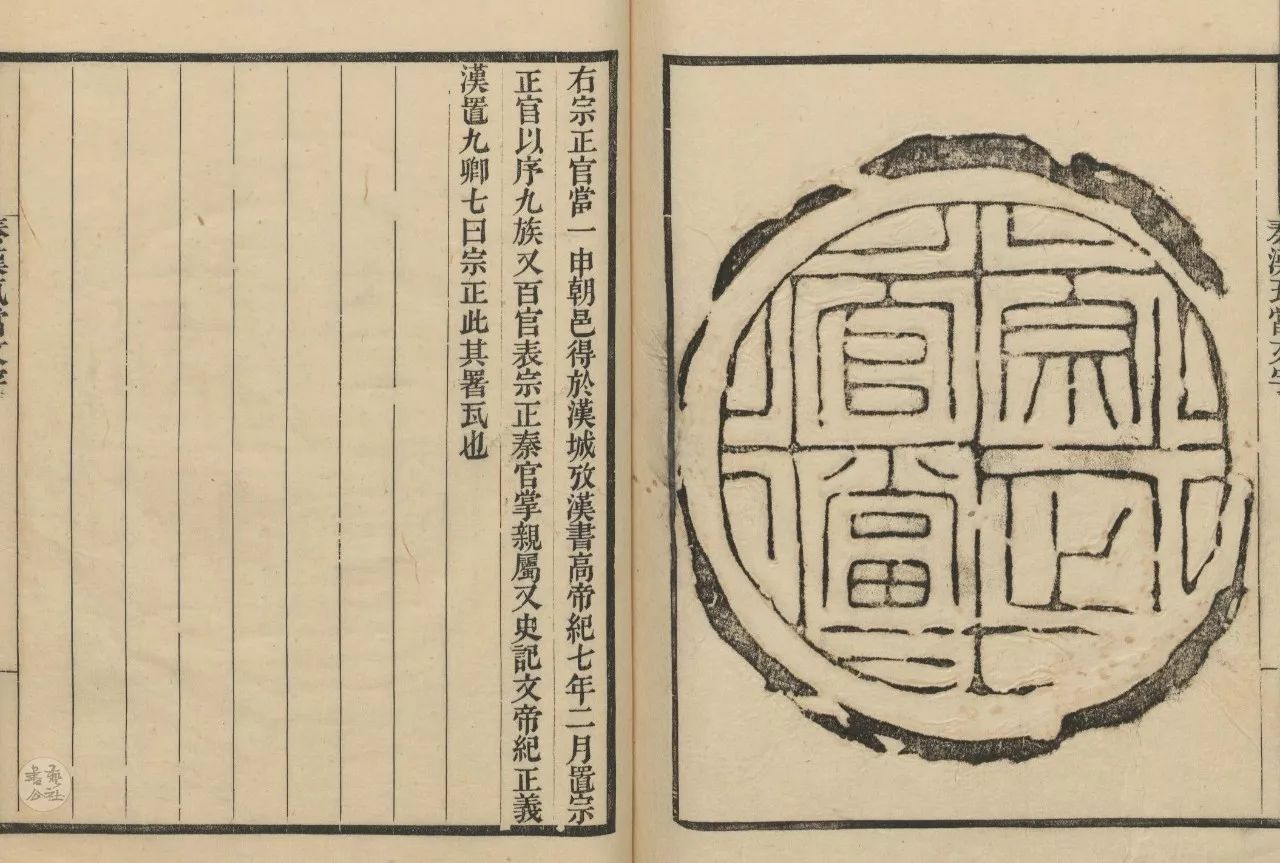 秦漢瓦當文字
宗正
官當
右宗正官當一申朝邑得於漢城攷漢書高帝紀七年二月置宗
正官以序九族又百官表宗正秦官掌親屬又史記文帝紀正義
漢置九卿七曰宗正此其署瓦也
秦漢瓦當文字